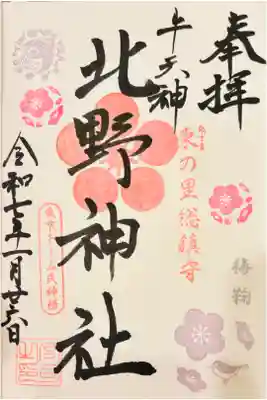 奉拝
牛天神
北野神社
東の里総鎮守
梅鞠
令和七年一月廿六日